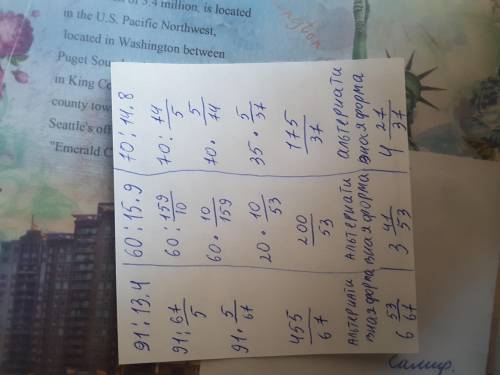 of 3.4 million, is located
in the U.S. Pacific Northwest,
located in Washington between
Puget Sou
in King Co
county tow
Seattle's off
"Emerald C
ngton
91:13.4
91:67/5
91·5/67
455/67
Альтернати
вная форма
6 53/67
60:15.9
60:159/10
60·10/159
20·10/53
200/53
Альтернати
вная форма
3 41/53
70:14.8
70:74/5
70·5/74
35·5/37
175/37
Альтернати
вная форма
4 27/37